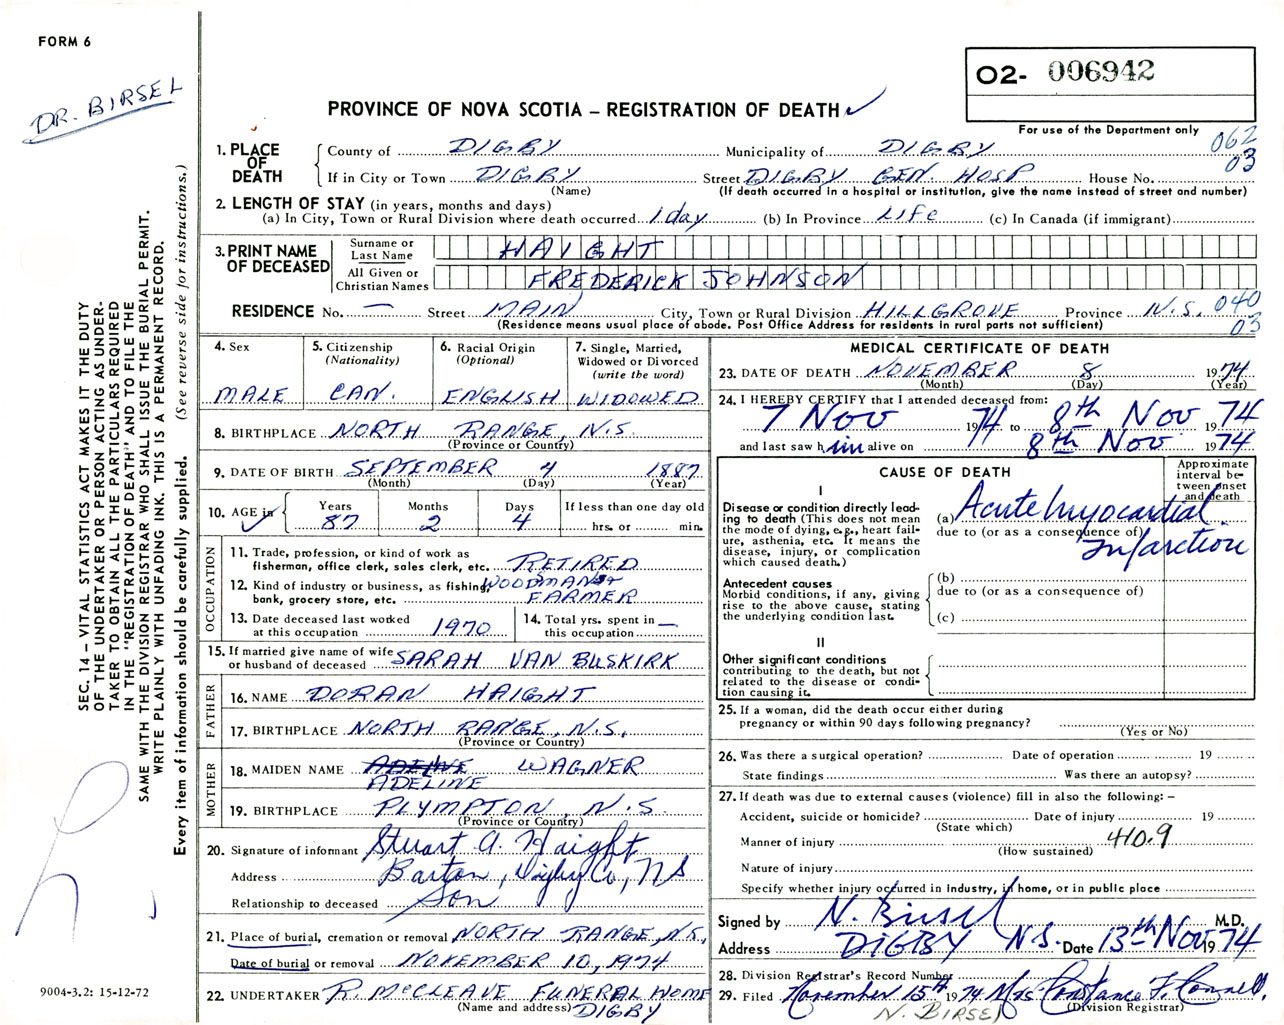 FORM 6
DR. BIRSEL
02- 006942
PROVINCE OF NOVA SCOTIA – REGISTRATION OF DEATH
For use of the Department only
062
03
1. PLACE OF DEATH
County of DIGBY Municipality of DIGBY
If in City or Town DIGBY Street DIGBY GEN. HOSP House No.
(Name) (If death occurred in a hospital or institution, give the name instead of street and number)
2. LENGTH OF STAY (in years, months and days)
(a) In City, Town or Rural Division where death occurred 1 day (b) In Province LIFE (c) In Canada (if immigrant)
3. PRINT NAME OF DECEASED
Surname or Last Name HAIGHT
All Given or Christian Names FREDERICK JOHNSON
RESIDENCE No. — Street MAIN City, Town or Rural Division HILLGROVE Province N.S. 040
03
(Residence means usual place of abode. Post Office Address for residents in rural parts not sufficient)
4. Sex
MALE
5. Citizenship
(Nationality)
CAN.
6. Racial Origin
(Optional)
ENGLISH
7. Single, Married,
Widowed or Divorced
(write the word)
WIDOWED
8. BIRTHPLACE NORTH RANGE, N.S.
(Province or Country)
9. DATE OF BIRTH SEPTEMBER 4 1887
(Month) (Day) (Year)
10. AGE in
Years Months Days If less than one day old
87 2 4 hrs. or min.
OCCUPATION
11. Trade, profession, or kind of work as
fisherman, office clerk, sales clerk, etc. RETIRED
12. Kind of industry or business, as fishing, WOODMAN &
bank, grocery store, etc. FARMER
13. Date deceased last worked
at this occupation 1970
14. Total yrs. spent in
this occupation —
15. If married give name of wife
or husband of deceased SARAH VAN BUSKIRK
FATHER
16. NAME DORAN HAIGHT
17. BIRTHPLACE NORTH RANGE, N.S.
(Province or Country)
MOTHER
18. MAIDEN NAME WAGNER
ADELINE
19. BIRTHPLACE PLYMPTON, N.S.
(Province or Country)
20. Signature of informant Stuart A. Haight
Address Barton, Digby Co, NS
Relationship to deceased Son
21. Place of burial, cremation or removal NORTH RANGE, N.S.
Date of burial or removal NOVEMBER 10, 1974
22. UNDERTAKER R. McCLEAVE FUNERAL HOME
(Name and address) DIGBY
MEDICAL CERTIFICATE OF DEATH
23. DATE OF DEATH NOVEMBER 8 1974
(Month) (Day) (Year)
24. I HEREBY CERTIFY that I attended deceased from:
7 Nov 1974 to 8th Nov 1974
and last saw him alive on 8th Nov 1974
CAUSE OF DEATH
Approximate interval between onset and death
I
Disease or condition directly lead-
ing to death (This does not mean
the mode of dying, e.g., heart fail-
ure, asthenia, etc. It means the
disease, injury, or complication
which caused death.)
(a) Acute Myocardial
due to (or as a consequence of) Infarction
Antecedent causes
Morbid conditions, if any, giving
rise to the above cause, stating
the underlying condition last.
(b)
due to (or as a consequence of)
(c)
II
Other significant conditions
contributing to the death, but not
related to the disease or condi-
tion causing it.
25. If a woman, did the death occur either during
pregnancy or within 90 days following pregnancy?
(Yes or No)
26. Was there a surgical operation? Date of operation 19
State findings Was there an autopsy?
27. If death was due to external causes (violence) fill in also the following: –
Accident, suicide or homicide? Date of injury 19
(State which)
Manner of injury 410.9
(How sustained)
Nature of injury
Specify whether injury occurred in industry, in home, or in public place
Signed by N. Birsel M.D.
Address DIGBY N.S. Date 13th Nov 1974
28. Division Registrar's Record Number
29. Filed November 15th 1974 Mrs Constance F. Connell.
(Division Registrar)
N. BIRSEL
SEC. 14 – VITAL STATISTICS ACT MAKES IT THE DUTY
OF THE UNDERTAKER OR PERSON ACTING AS UNDER-
TAKER TO OBTAIN ALL THE PARTICULARS REQUIRED
IN THE "REGISTRATION OF DEATH" AND TO FILE THE
SAME WITH THE DIVISION REGISTRAR WHO SHALL ISSUE THE BURIAL PERMIT.
WRITE PLAINLY WITH UNFADING INK. THIS IS A PERMANENT RECORD.
Every item of information should be carefully supplied. (See reverse side for instructions.)
9004-3.2: 15-12-72